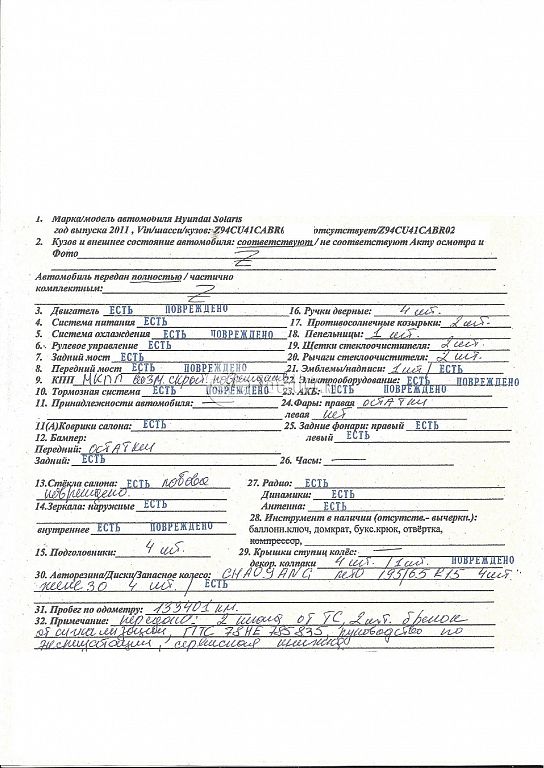 1. Марка/модель автомобиля Hyundai Solaris
год выпуска 2011 , Vin/шасси/кузов: Z94CU41CABR0 отсутствует/Z94CU41CABR02
2. Кузов и внешнее состояние автомобиля: соответствуют / не соответствуют Акту осмотра и
Фото Z
Автомобиль передан полностью / частично
комплектным: Z
3. Двигатель ЕСТЬ ПОВРЕЖДЕНО
4. Система питания ЕСТЬ
5. Система охлаждения ЕСТЬ ПОВРЕЖДЕНО
6. Рулевое управление ЕСТЬ
7. Задний мост ЕСТЬ
8. Передний мост ЕСТЬ ПОВРЕЖДЕНО
9. КПП МКПП возм. скрыт. повреждения
10. Тормозная система ЕСТЬ ПОВРЕЖДЕНО
11. Принадлежности автомобиля: —
11(А)Коврики салона: ЕСТЬ
12. Бампер:
Передний: остатки
Задний: ЕСТЬ
13.Стёкла салона: ЕСТЬ лобовое
повреждено.
14.Зеркала: наружные ЕСТЬ
внутреннее ЕСТЬ ПОВРЕЖДЕНО
15. Подголовники: 4 шт.
16. Ручки дверные: 4 шт.
17. Противосолнечные козырьки: 2 шт.
18. Пепельницы: 1 шт.
19. Щетки стеклоочистителя: 2 шт.
20. Рычаги стеклоочистителя: 2 шт.
21. Эмблемы/надписи: 1 шт/ ЕСТЬ
22. Электрооборудование: ЕСТЬ ПОВРЕЖДЕНО
23. АКБ: ЕСТЬ ПОВРЕЖДЕНО
24.Фары: правая остатки
левая нет
25. Задние фонари: правый ЕСТЬ
левый ЕСТЬ
26. Часы: —
27. Радио: ЕСТЬ
Динамики: ЕСТЬ
Антенна: ЕСТЬ
28. Инструмент в наличии (отсутств.- вычеркн.):
баллонн.ключ, домкрат, букс.крюк, отвёртка,
компрессор,
29. Крышки ступиц колёс: —
декор. колпаки 4 шт. / 1 шт. ПОВРЕЖДЕНО
30. Авторезина/Диски/Запасное колесо: CHAOYANG лето 195/65 R15 4 шт
железо 4 шт. / ЕСТЬ
31. Пробег по одометру: 133401 км.
32. Примечание: передано: 2 ключа от ТС, 2 шт. брелок
от сигнализации, ПТС 78НЕ 785835, руководство по
эксплуатации, сервисная книжка